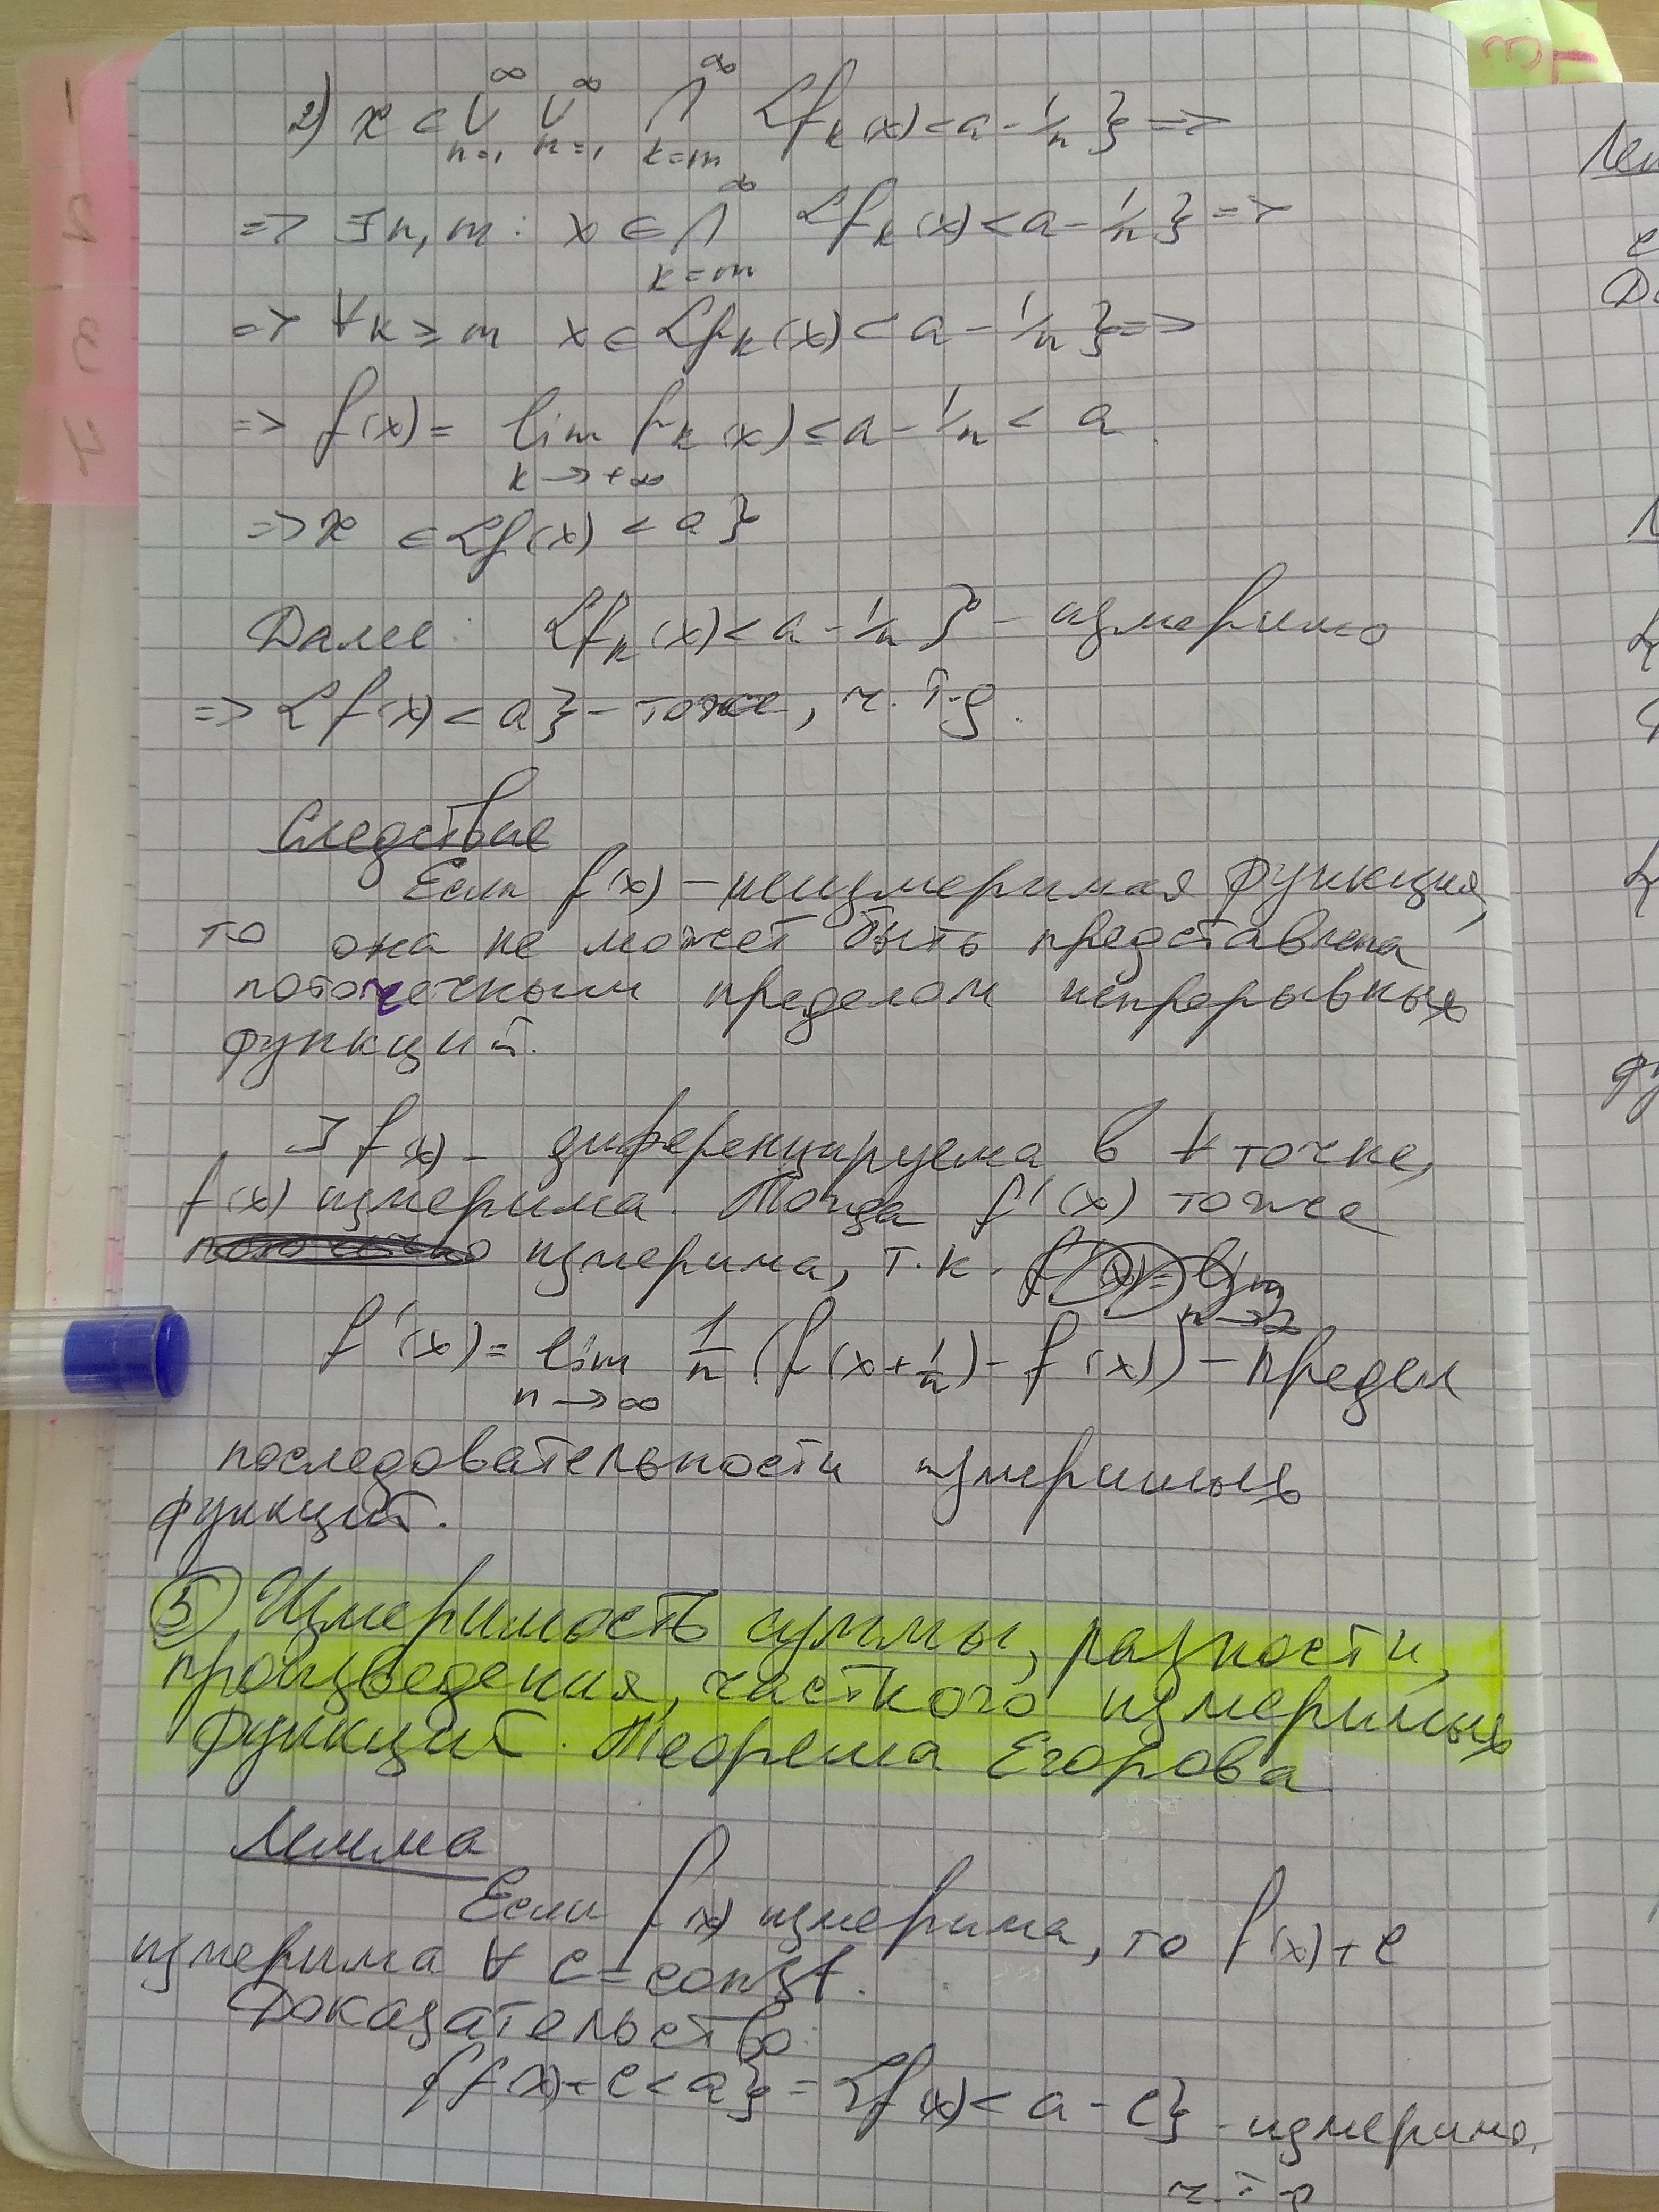 2) x ∈ ∪_{n=1}^∞ ∪_{m=1}^∞ ∩_{k=m}^∞ {f_k(x) < a - 1/n} =>
=> ∃ n, m : x ∈ ∩_{k=m}^∞ {f_k(x) < a - 1/n} =>
=> ∀ k ≥ m x ∈ {f_k(x) < a - 1/n} =>
=> f(x) = lim_{k→+∞} f_k(x) ≤ a - 1/n < a
=> x ∈ {f(x) < a}
Далее: {f_k(x) < a - 1/n} - измеримо
=> {f(x) < a} - тоже, ч.т.д.
Следствие
Если f(x) - неизмеримая функция,
то она не может быть представлена
поточечным пределом непрерывных
функций.
] f(x) - диференцируема в ∀ точке,
f(x) измерима. Тогда f'(x) тоже
измерима, т.к.
f'(x) = lim_{n→∞} 1/n (f(x + 1/n) - f(x)) - предел
последовательности измеримых
функций.
5) Измеримость суммы, разности,
произведения, частного измеримых
функций. Теорема Егорова
Лемма
Если f(x) измерима, то f(x) + c
измерима ∀ c = const.
Доказательство:
{f(x) + c < a} = {f(x) < a - c} - измеримо,
ч.т.д